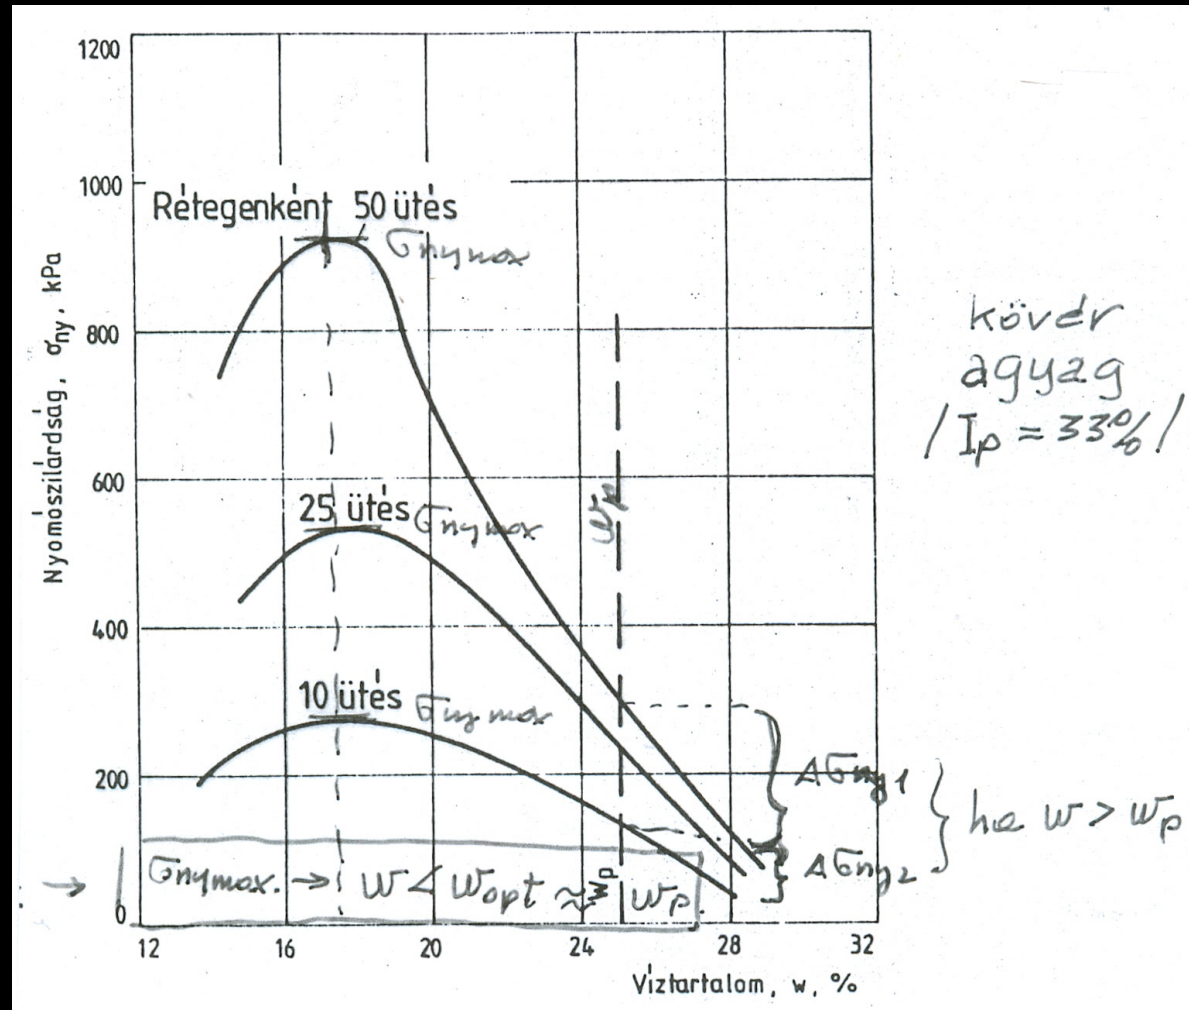 1200
1000
800
600
400
200
0
Nyomószilárdság, σny, kPa
Rétegenként 50 ütés
σnymax
25 ütés σnymax
10 ütés σnymax
wp
kövér
agyag
/Ip = 33%/
Δσny1
Δσny2
ha w > wp
→ σnymax. → w < wopt ≈ wp
wp
12 16 20 24 28 32
Víztartalom, w, %